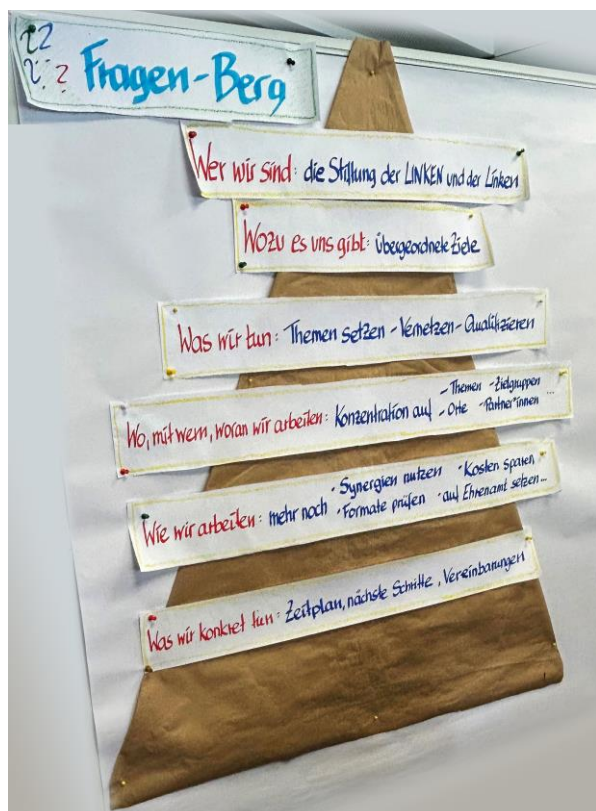 ?? ?? Fragen-Berg
Wer wir sind: die Stiftung der LINKEN und der Linken
Wozu es uns gibt: übergeordnete Ziele
Was wir tun: Themen setzen - Vernetzen - Qualifizieren
Wo, mit wem, woran wir arbeiten: Konzentration auf - Themen - Zielgruppen
- Orte - Partner*innen ...
Wie wir arbeiten: mehr noch · Synergien nutzen · Kosten sparen
· Formate prüfen · auf Ehrenamt setzen...
Was wir konkret tun: Zeitplan, nächste Schritte, Vereinbarungen